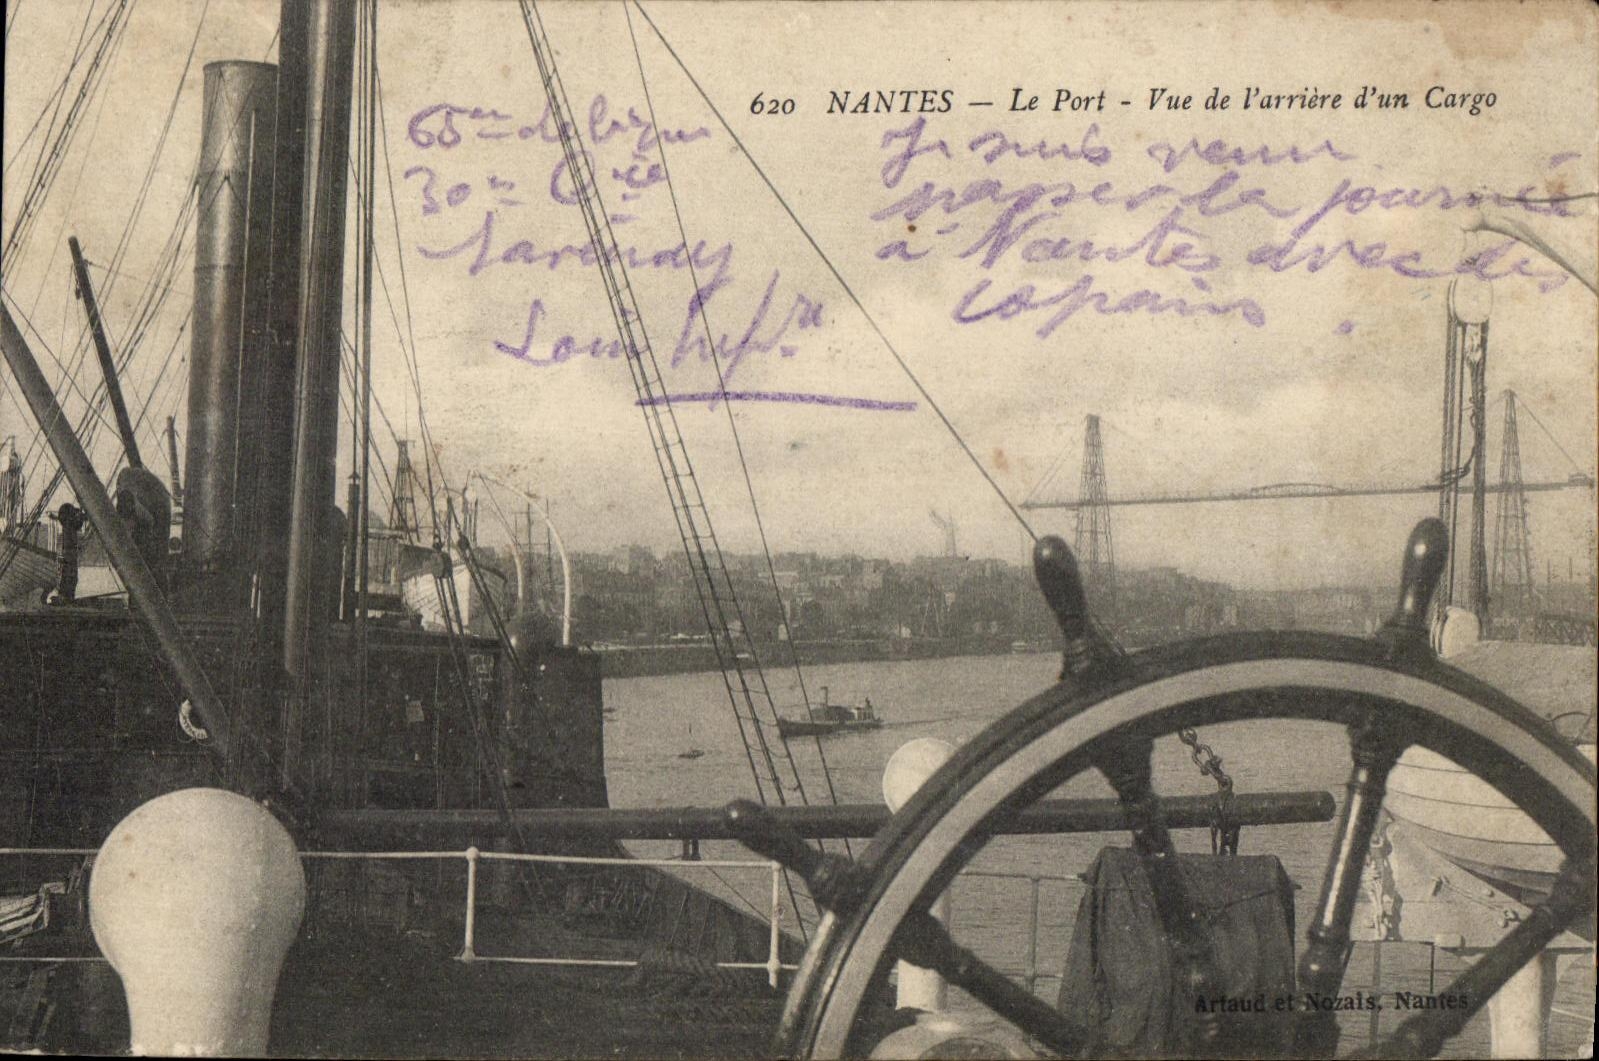 620 NANTES — Le Port - Vue de l'arrière d'un Cargo
65me de ligne
30me Cie
Je suis venu
passer la journée
à Nantes avec des
copains .
Artaud et Nozais, Nantes